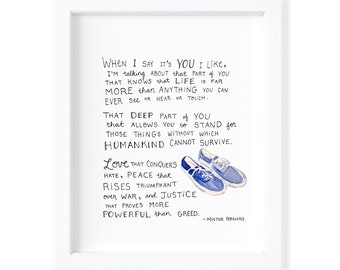 WHEN I SAY IT'S YOU I LIKE,
I'M TALKING ABOUT that PART of YOU
THAT KNOWS that LIFE is FAR
MORE than ANYTHING YOU CAN
EVER SEE or HEAR or TOUCH.
THAT DEEP PART of YOU
that ALLOWS YOU to STAND for
THOSE THINGS WITHOUT WHICH
HUMANKIND CANNOT SURVIVE.
Love THAT CONQUERS
HATE, PEACE that
RISES TRIUMPHANT
over WAR, and JUSTICE
THAT PROVES MORE
POWERFUL than GREED.
-MISTER ROGERS